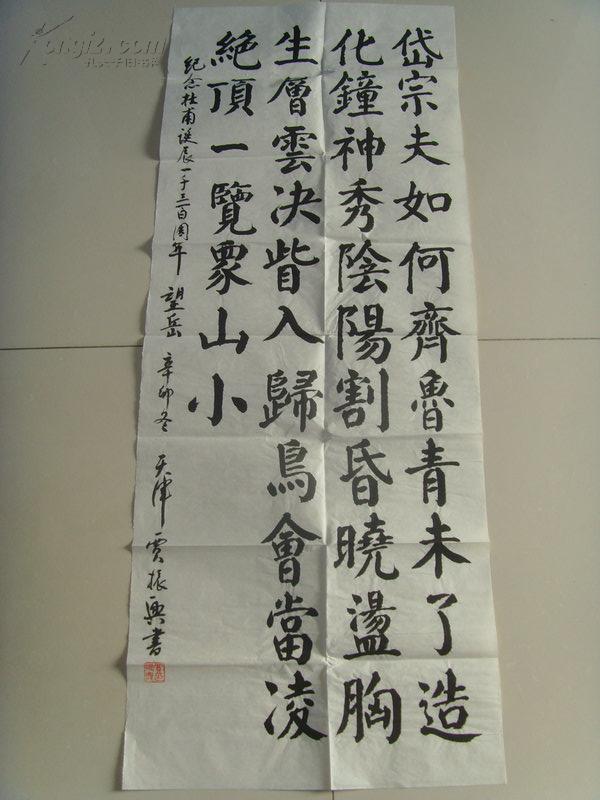 岱宗夫如何齊魯青未了造
化鐘神秀陰陽割昏曉盪胸
生層雲决眥入歸鳥會當凌
絶頂一覽衆山小
纪念杜甫诞辰一千三百周年 望岳 辛卯冬 天津 賈振興書